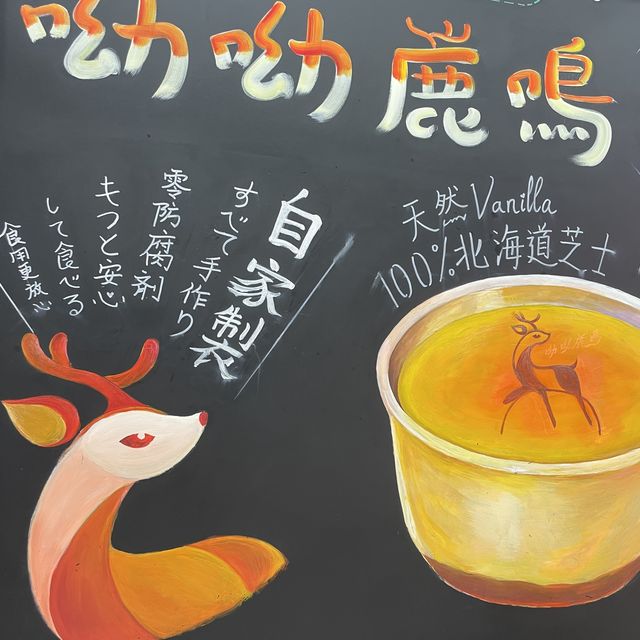 呦呦鹿鳴
天然Vanilla
100%北海道芝士
自家製
すべて手作り
零防腐剤
もっと安心
して食べる
食用更放心
呦呦鹿鳴